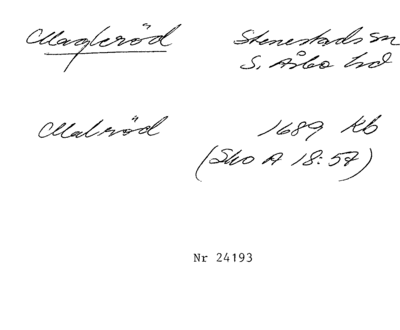 Magleröd Stenestads sn
S. Åsbo hd
Malröd 1689 Kb
(Sko A 18:57)
Nr 24193